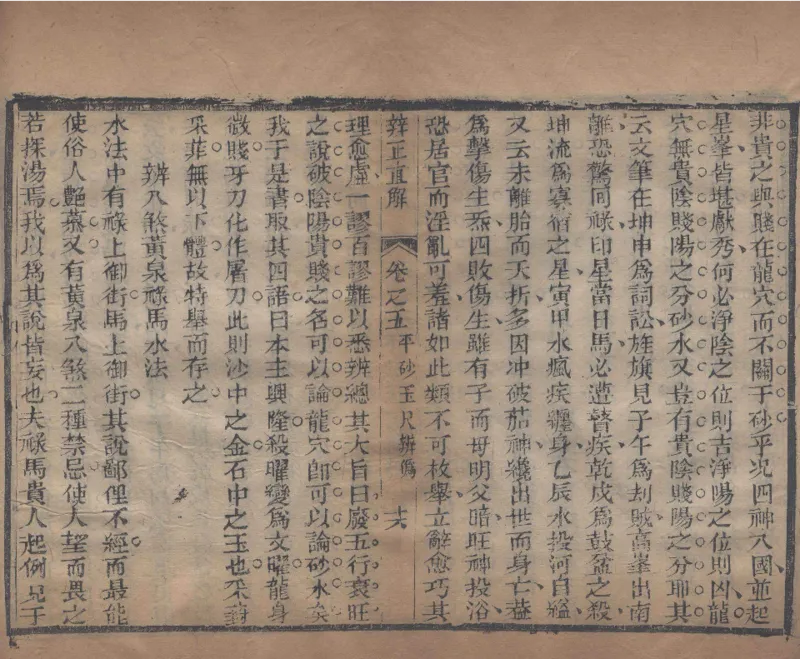 非貴之與賤在龍穴而不關于砂乎况四神八國並起
星峯皆堪獻秀何必淨陰之位則吉淨陽之位則凶龍
穴無貴陰賤陽之分砂水又豈有貴陰賤陽之分耶其
云文筆在坤申為詞訟旌旗見子午為刦賊高峯出南
離恐驚囘祿印星當日馬必遭瞽疾乾戌為鼓盆之殺
坤流為寡宿之星寅甲水瘋疾纏身乙辰水投河自縊
又云未離胎而夭折多因冲破茄神纔出世而身亡葢
為擊傷生炁四敗傷生雖有子而母明父暗旺神投浴
恐居官而淫亂可羞諸如此類不可枚舉立辭愈巧其
辨正直解 卷之五 平砂玉尺辨偽 十六
理愈虛一謬百謬難以悉辨總其大旨曰廢五行衰旺
之說破陰陽貴賤之名可以論龍穴卽可以論砂水矣
我于是書取其四語曰本主興隆殺曜變為文曜龍身
微賤牙刀化作屠刀此則沙中之金石中之玉也采葑
采菲無以下體故特舉而存之
辨八煞黃泉祿馬水法
水法中有祿上御街馬上御街其說鄙俚不經而最能
使俗人艷慕又有黃泉八煞二種禁忌使人望而畏之
若探湯焉我以為其說皆妄也夫祿馬貴人起例見于